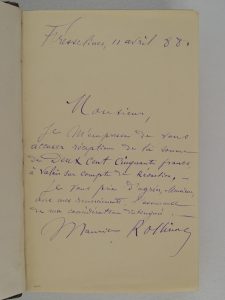 Fresselines, 11 avril 88.
Monsieur,
Je m'empresse de vous
accuser réception de la somme
de Deux Cent Cinquante francs
à valoir sur compte de
Je vous prie d'agréer, Monsieur
avec mes l'assurance
de ma considération distinguée. —
Maurice Rollinat